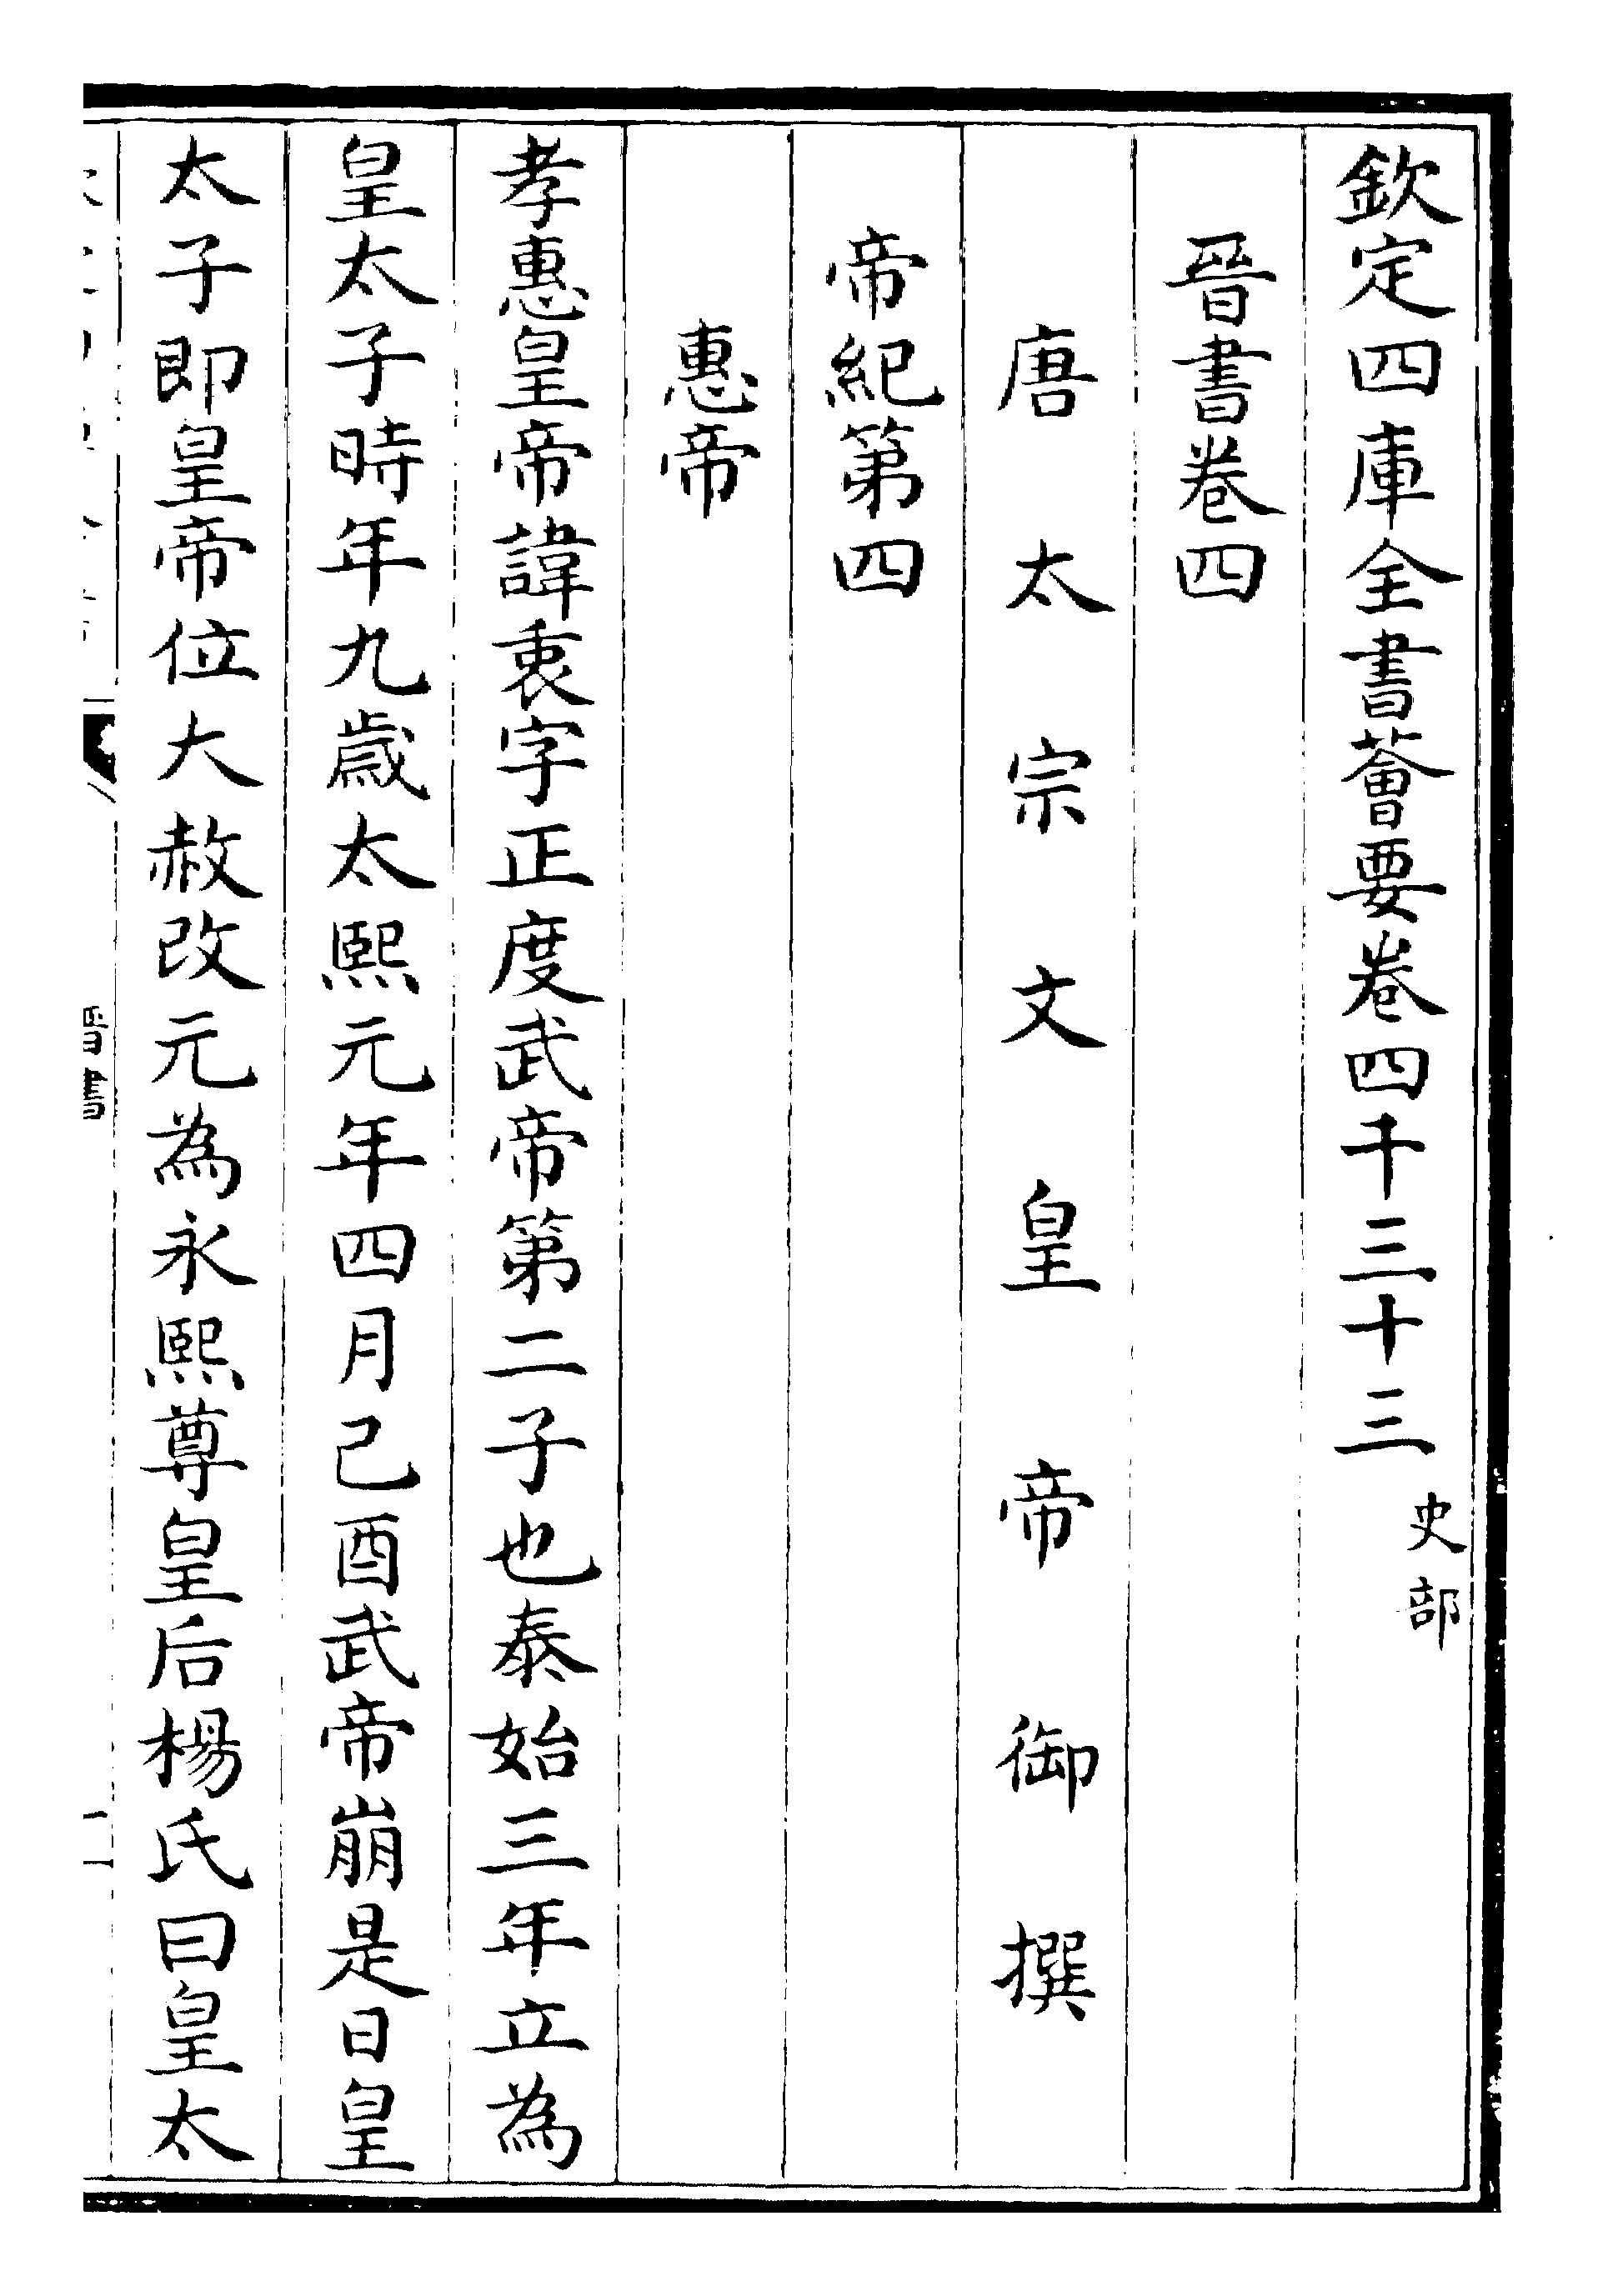 欽定四庫全書薈要卷四千三十三 史部
晉書卷四
唐太宗文皇帝御撰
帝紀第四
惠帝
孝惠皇帝諱衷字正度武帝第二子也泰始三年立為
皇太子時年九歲太熙元年四月己酉武帝崩是日皇
太子即皇帝位大赦改元為永熙尊皇后楊氏曰皇太
晉書